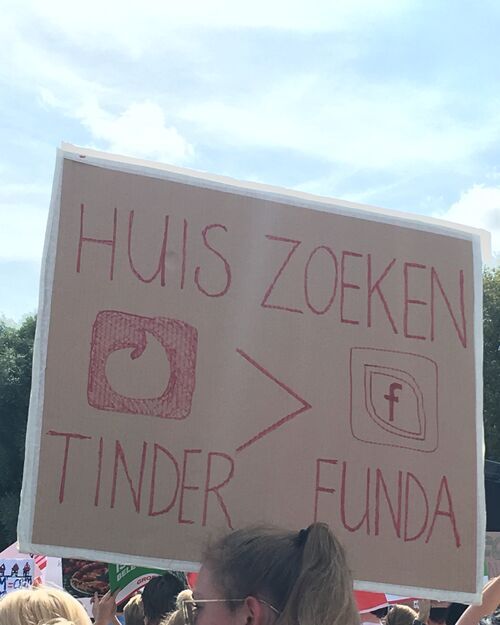 HUIS ZOEKEN
> f
TINDER FUNDA